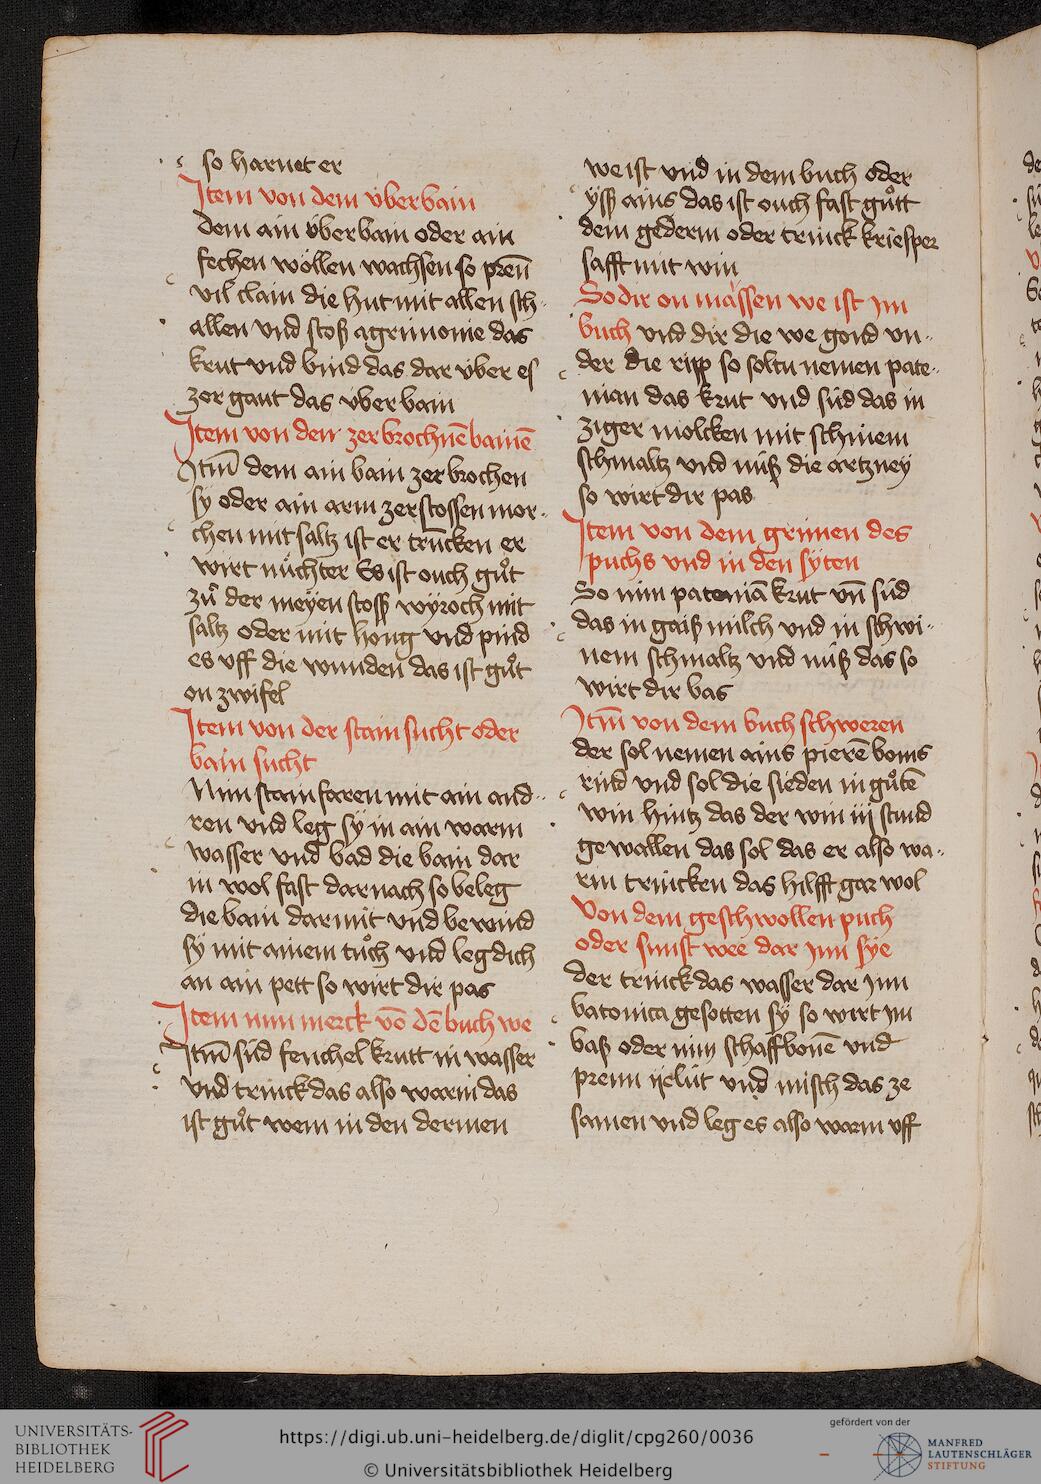 so harnet er
Item von dem v̈berbain
Dem ain v̈berbain oder ain
fechen wöllen wachsen so preñ
vil clain die hut mit allen sch¬
allen vnd stoß agrimonie das
krut vnd bind das dar v̈ber es
zer gaut das v̈berbain
Item von den zerbrochnē bainē
Itm̄ dem ain bain zerbrochen
sy oder ain arm zerstossen mor¬
chen mit saltz ist er trucken er
wirt nüchter Es ist ouch gůt
zů der meyen stosß wyroch mit
saltz oder mit hong vnd pind
es vff die wunden das ist gůt
on zwifel
Item von der stain sucht oder
bain sucht
Nim stain faren mit ain and¬
ren vnd leg sy in ain warm
wasser vnd bad die bain dar
in wol fast darnach so beleg
die bain darmit vnd bewind
sy mit ainem tůch vnd leg dich
an ain pett so wirt dir pas
Item nun merck vō dē buch we
Itm̄ süd fenchel krutt in wasser
vnd trinck das also warm das
ist gůt wem in den dermen
we ist vnd in dem buch oder
ysß ains das ist ouch fast gůtt
dem gederm oder trinck kriesper
safft mit win
So dir on mässen we ist jm
buch vnd dir die we gond vn¬
der die ripp so soltu nemen pate¬
nian das krut vnd süd das in
ziger molcken mit schinem
schmaltz vnd nüß die artzney
so wirt dir pas
Item von dem grimen des
puchs vnd in den syten
So nim pateniā krut vn̄ süd
das in gaiß milch vnd in schwi¬
nem schmaltz vnd nüß das so
wirt dir bas
Itm̄ von dem buch schweren
der sol nemen ains pierē boms
rind vnd sol die sieden in gůtē
win hintz das der win iij stund
gewallen das sol das er also wa¬
rm trincken das hilfft gar wol
Von dem geschwollen puch
oder sunst wee dar jnn sye
der trinck das wasser dar jnn
batonica gesotten sy so wirt jm
baß oder nim schaffbonē vnd
prenn vnd misch das ze
samen vnd leg es also warm vff
UNIVERSITÄTS-
BIBLIOTHEK
HEIDELBERG
https://digi.ub.uni-heidelberg.de/diglit/cpg260/0036
© Universitätsbibliothek Heidelberg
gefördert von der
MANFRED
LAUTENSCHLÄGER
STIFTUNG